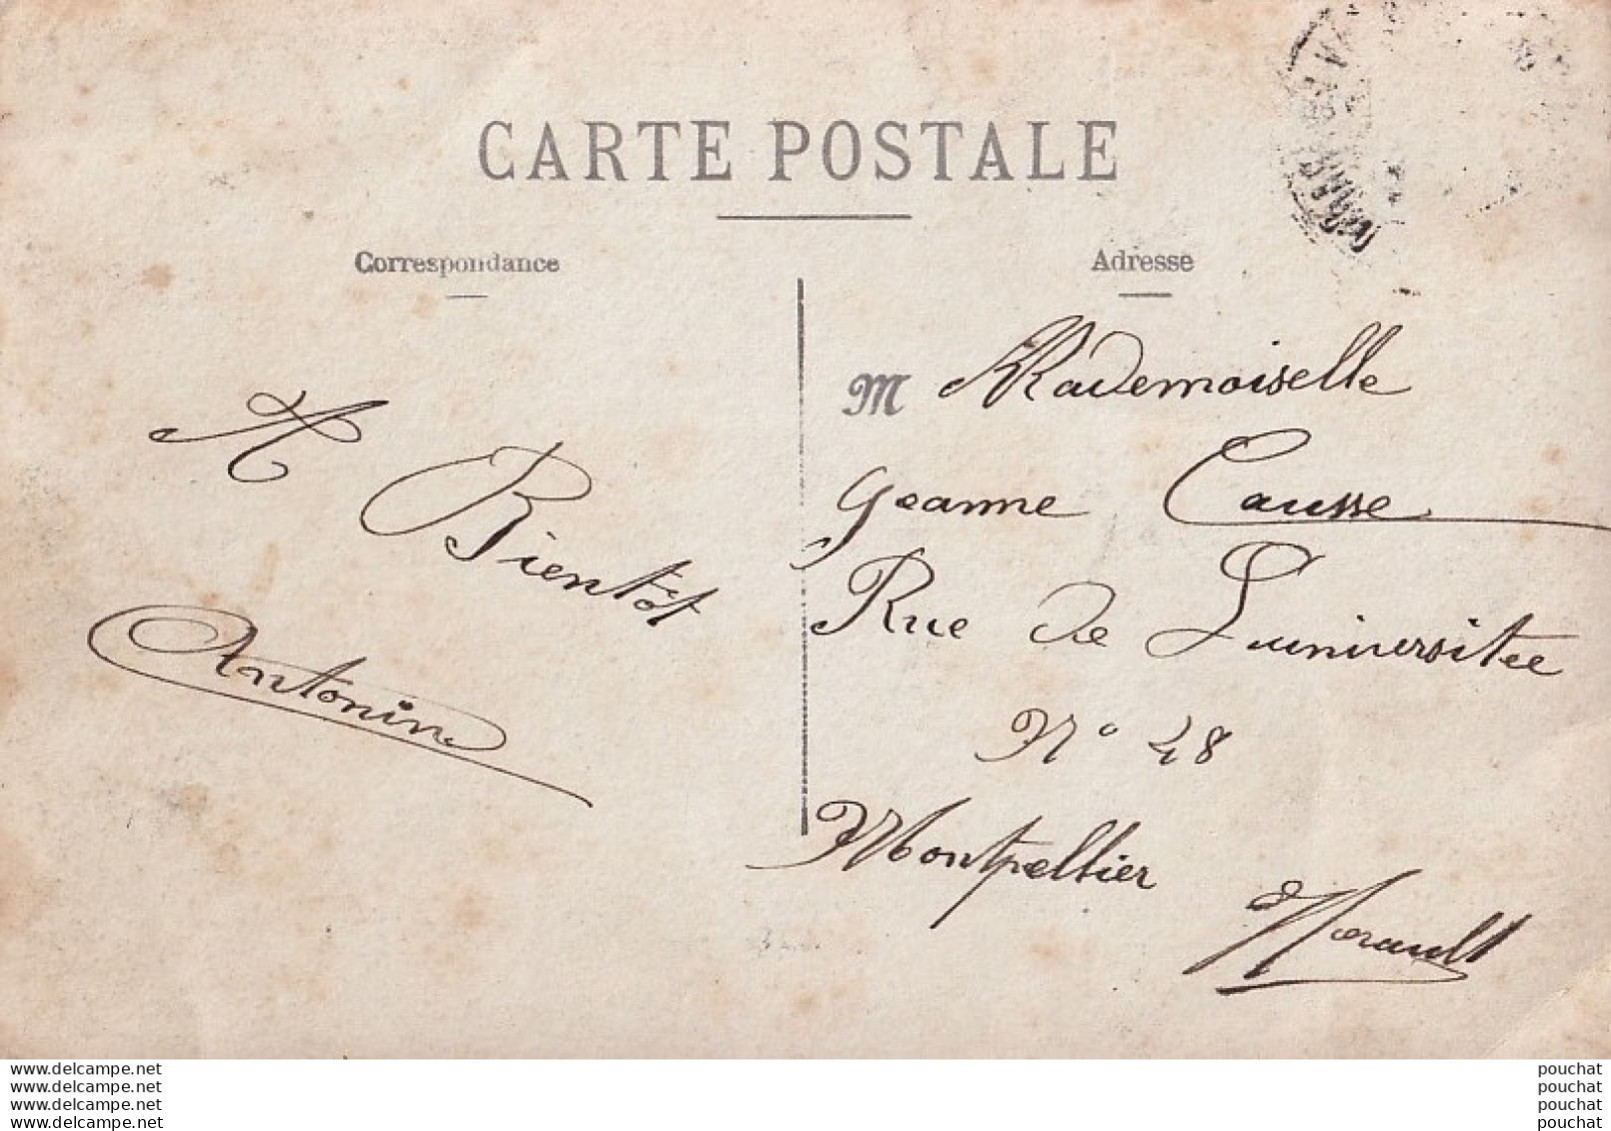 CARTE POSTALE
Correspondance
Adresse
A Bientôt
Antonin
M Mademoiselle
Jeanne Causse
Rue de Luniversitee
N° 48
Montpellier
Herault
www.delcampe.net
www.delcampe.net
www.delcampe.net
www.delcampe.net
pouchat
pouchat
pouchat
pouchat